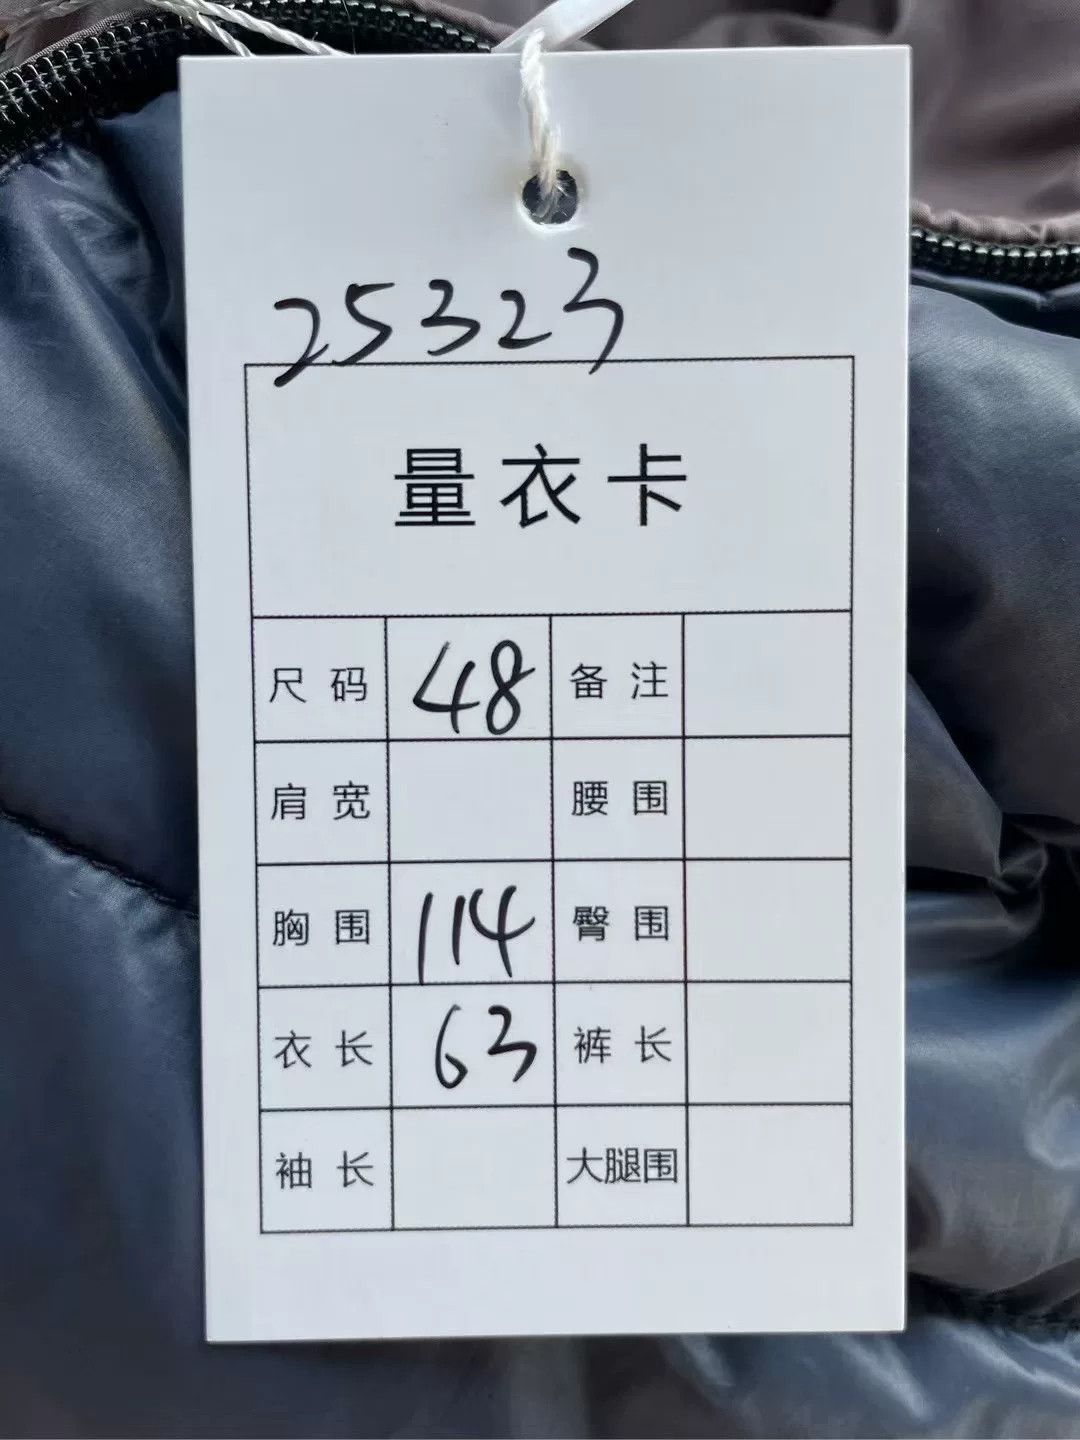 25323
量衣卡
尺码 48 备注
肩宽 腰围
胸围 114 臀围
衣长 63 裤长
袖长 大腿围